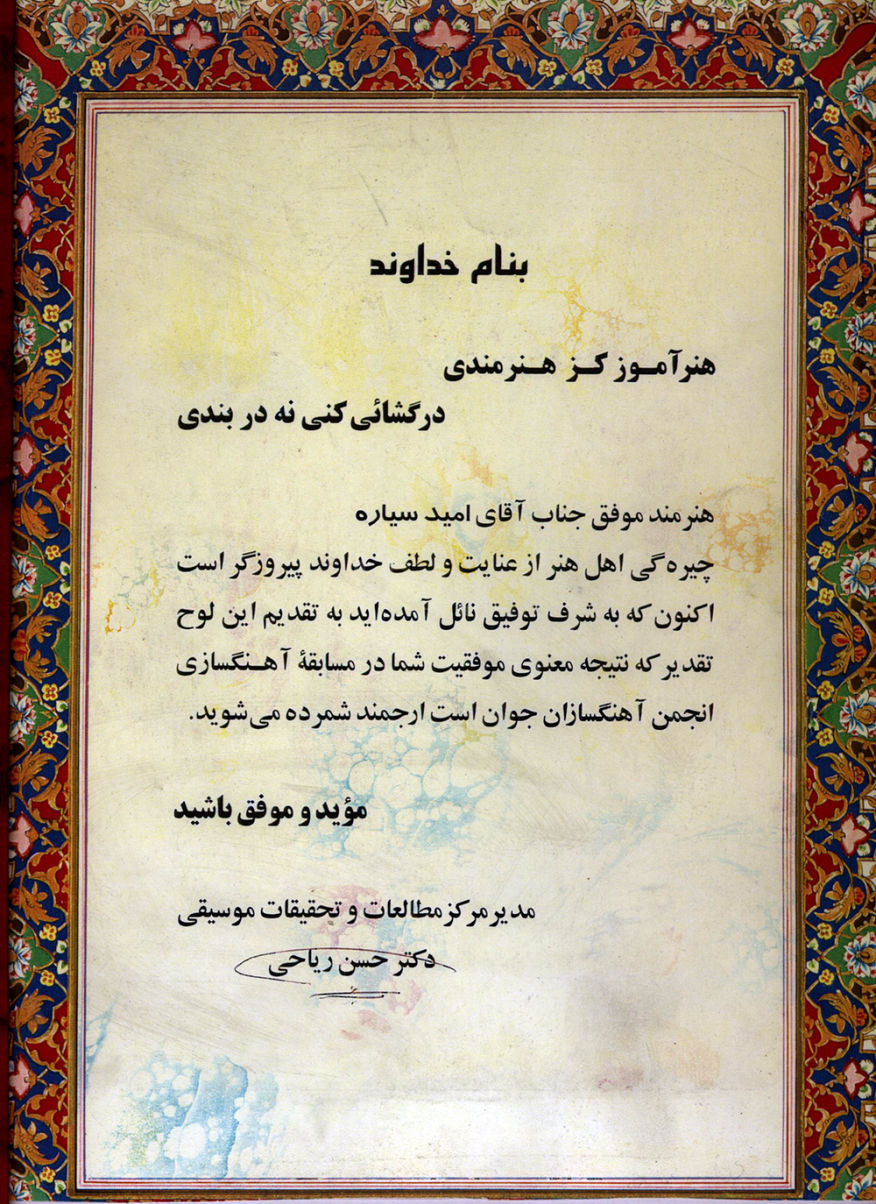 بنام خداوند
هنرآموز کز هنرمندی
درگشائی کنی نه در بندی
هنرمند موفق جناب آقای امید سیاره
چیره‌گی اهل هنر از عنایت و لطف خداوند پیروزگر است
اکنون که به شرف توفیق نائل آمده‌اید به تقدیم این لوح
تقدیر که نتیجه معنوی موفقیت شما در مسابقهٔ آهنگسازی
انجمن آهنگسازان جوان است ارجمند شمرده می‌شوید.
مؤید و موفق باشید
مدیر مرکز مطالعات و تحقیقات موسیقی
دکتر حسن ریاحی